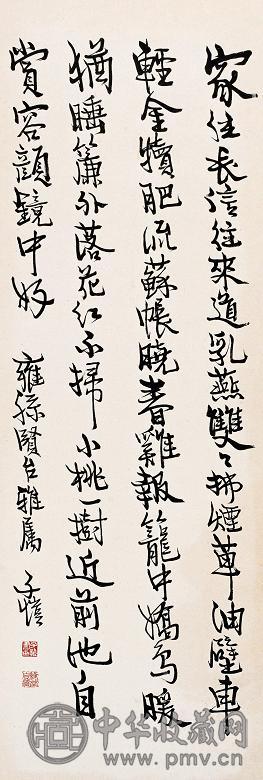 家住長信往來道乳燕雙々拂煙草油壁車
輕金犢肥流蘇帳曉春雞報籠中嬌鳥暖
猶睡簾外落花紅不掃小桃一樹近前池自
賞容顏鏡中好
雍孫賢台雅屬 子愷
中华收藏网
www.pmv.cn